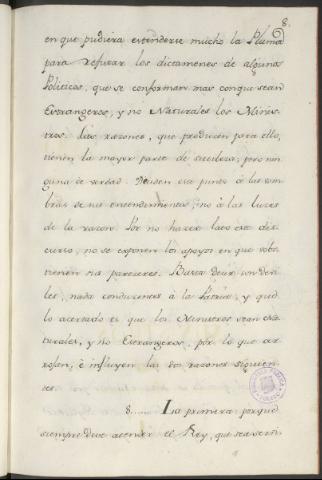 8.
en que pudiera extenderse mucho la Pluma
para refutar los dictamenes de algunos
Politicos, que se conforman mas con que sean
Estrangeros, y no Naturales los Minis-
tros. Las razones, que producen para ello,
tienen la mayor parte de sutileza, pero nin-
guna de verdad. Miden este punto à las som-
bras de sus entendimientos, no à las luces
de la razon. Por no hacer lato este dis-
curso, no se exponen los apoyos en que sobs-
tienen sus pareceres. Basta decir son devi-
les, nada conducentes à la Patria, y què
lo acertado es que los Ministros sean Na-
turales, y no Estrangeros, por lo que co-
rroboran, è influyen las dos razones siguien-
tes.
8...... La primera porque
siempre deve atender el Rey, que sea servi-